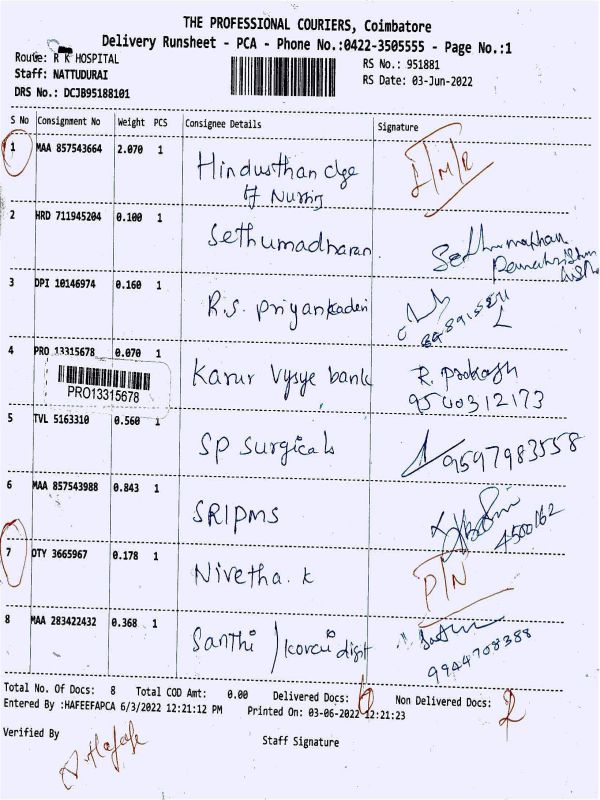 THE PROFESSIONAL COURIERS, Coimbatore
Delivery Runsheet - PCA - Phone No.:0422-3505555 - Page No.:1
Route: R K HOSPITAL
RS No.: 951881
Staff: NATTUDURAI
RS Date: 03-Jun-2022
DRS No.: DCJB95188101
S No Consignment No Weight PCS Consignee Details Signature
1 MAA 857543664 2.070 1 Hindusthan clge
of Nursing
2 HRD 711945204 0.100 1 Sethumadharan
3 DPI 10146974 0.160 1 R.S. Priyankadevi
4 PRO 13315678 0.070 1 Karur Vysye bank R. Prakash
PRO13315678
9500312173
5 TVL 5163310 0.560 1 SP Surgicals 9597983558
6 MAA 857543988 0.843 1 SRIPMS
4500162
7 OTY 3665967 0.178 1 Nivetha. K D/N
8 MAA 283422432 0.368 1 Santhi
9944708388
Total No. Of Docs: 8 Total COD Amt: 0.00 Delivered Docs: 6 Non Delivered Docs: 2
Entered By :HAFEEFAPCA 6/3/2022 12:21:12 PM Printed On: 03-06-2022 12:21:23
Verified By
Staff Signature